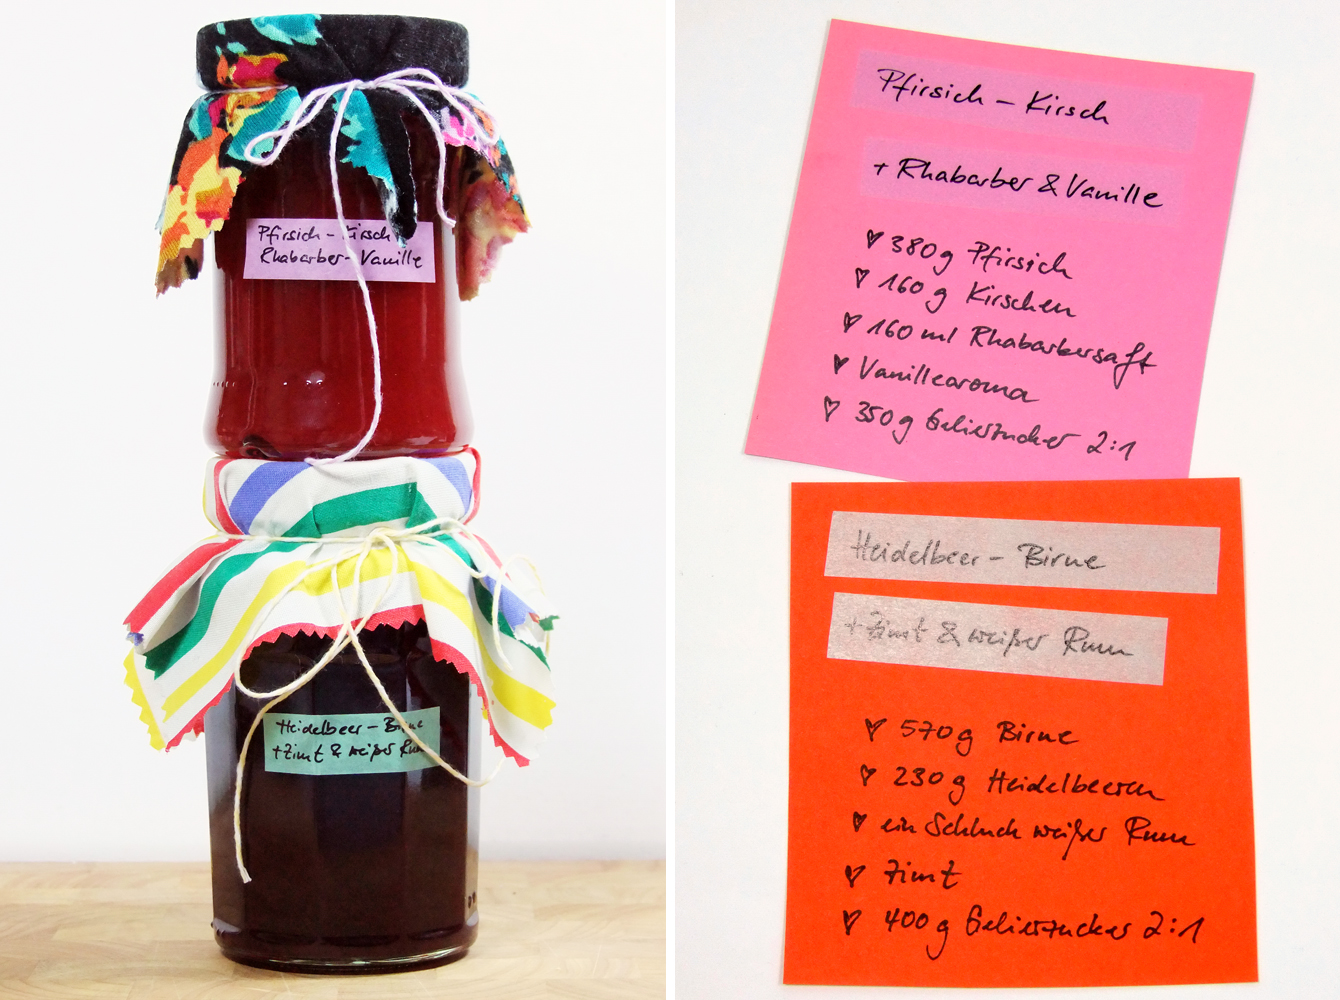 Pfirsich - Kirsch
Rhabarber - Vanille
Heidelbeer - Birne
+ Zimt & weißer Rum
Pfirsich - Kirsch
+ Rhabarber & Vanille
♥ 380g Pfirsich
♥ 160 g Kirschen
♥ 160 ml Rhabarbersaft
♥ Vanillearoma
♥ 350g Gelierzucker 2:1
Heidelbeer - Birne
+ Zimt & weißer Rum
♥ 570g Birne
♥ 230 g Heidelbeeren
♥ ein Schluck weißer Rum
♥ Zimt
♥ 400g Gelierzucker 2:1